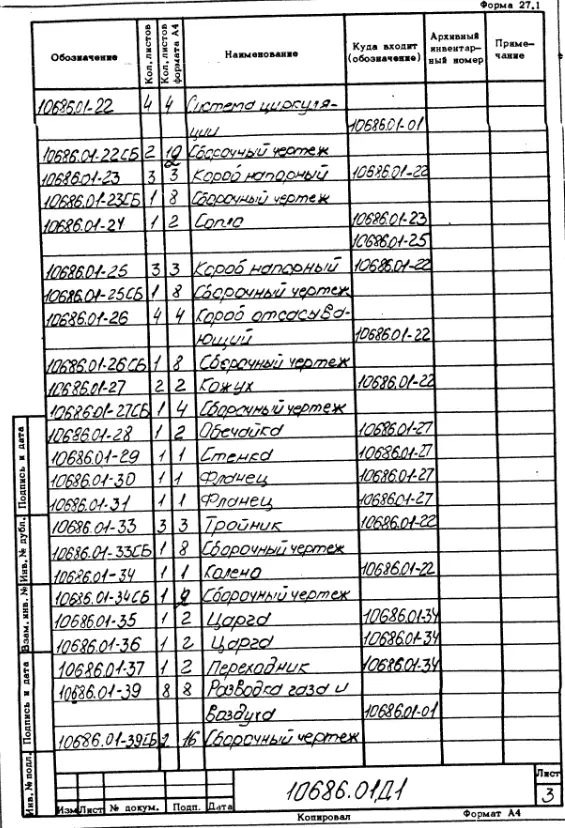 Форма 27.1
Обозначение Кол. листов Кол. листов формата А4 Наименование Куда входит (обозначение) Архивный инвентарный номер Примечание
10686.01-22 4 4 Система циркуля-
ции 10686.01-01
10686.01-22СБ 2 Сборочный чертеж
10686.01-23 3 3 Короб напорный 10686.01-22
10686.01-23СБ 1 8 Сборочный чертеж
10686.01-24 1 2 Сопло 10686.01-23
10686.01-25
10686.01-25 3 3 Короб напорный 10686.01-22
10686.01-25СБ 1 8 Сборочный чертеж
10686.01-26 4 4 Короб отсасыва-
ющий 10686.01-22
10686.01-26СБ 1 8 Сборочный чертеж
10686.01-27 2 2 Кожух 10686.01-22
10686.01-27СБ 1 4 Сборочный чертеж
10686.01-28 1 2 Обечайка 10686.01-27
10686.01-29 1 1 Стенка 10686.01-27
10686.01-30 1 1 Фланец 10686.01-27
10686.01-31 1 1 Фланец 10686.01-27
10686.01-33 3 3 Тройник 10686.01-22
10686.01-33СБ 1 8 Сборочный чертеж
10686.01-34 1 1 Колено 10686.01-22
10686.01-34СБ 1 Сборочный чертеж
10686.01-35 1 2 Царга 10686.01-34
10686.01-36 1 2 Царга 10686.01-34
10686.01-37 1 2 Переходник 10686.01-34
10686.01-39 8 8 Разводка газа и
воздуха 10686.01-01
10686.01-39СБ 2 16 Сборочный чертеж
Инв. № подл. Подпись и дата Взам. инв. № Инв. № дубл. Подпись и дата
Изм Лист № докум. Подп. Дата
10686.01Д1
Лист
3
Копировал Формат А4